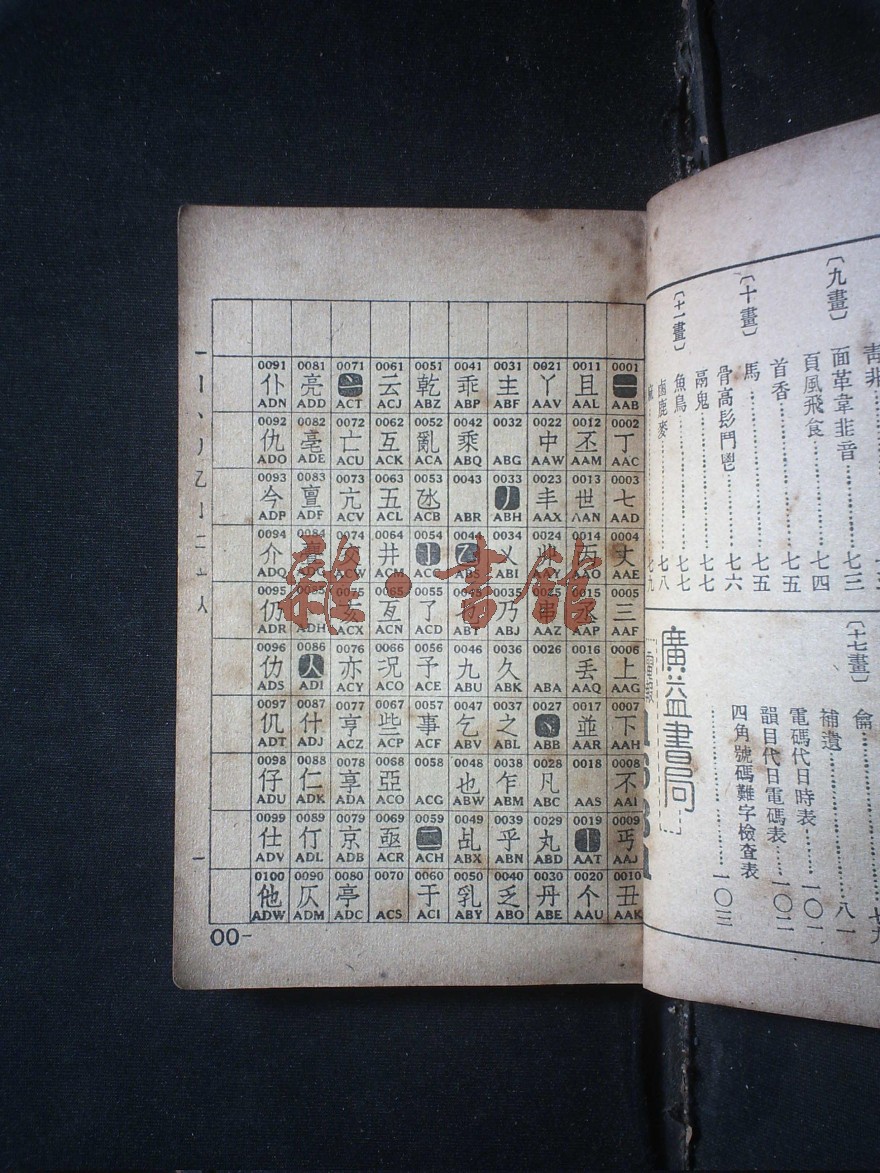 〔九畫〕
面革韋韭音
頁風飛食
七三
七四
首香
七五
〔十畫〕
馬
七五
骨高髟鬥鬯
七六
鬲鬼
七七
〔十一畫〕
魚鳥
七七
鹵鹿麥
七八
〔十七畫〕
龠
補遺
八一
電碼代日時表
一〇一
韻目代日電碼表
一〇二
四角號碼難字檢查表
一〇三
廣益書局
0091 0081 0071 0061 0051 0041 0031 0021 0011 0001
仆 亮 亠 云 乾 乖 主 丫 且 一
ADN ADD ACT ACJ ABZ ABP ABF AAV AAL AAB
0092 0082 0072 0062 0052 0042 0032 0022 0012 0002
仇 亳 亡 互 亂 乘 中 丕 丁
ADO ADE ACU ACK ACA ABQ ABG AAW AAM AAC
0093 0083 0073 0063 0053 0043 0033 0023 0013 0003
今 亶 亢 五 丿 丰 世 七
ADP ADF ACV ACL ACB ABR ABH AAX AAN AAD
0094 0084 0074 0064 0054 0044 0034 0024 0014 0004
介 交 井 亅 乙 乂 丱 丙 丈
ADQ ADG ACW ACM ACC ABS ABI AAY AAO AAE
0095 0085 0075 0065 0055 0045 0035 0025 0015 0005
仍 亥 亙 了 乃 串 丞 三
ADR ADH ACX ACN ACD ABT ABJ AAZ AAP AAF
0096 0086 0076 0066 0056 0046 0036 0026 0016 0006
仂 人 亦 况 予 九 久 丢 上
ADS ADI ACY ACO ACE ABU ABK ABA AAQ AAG
0097 0087 0077 0067 0057 0047 0037 0027 0017 0007
仉 什 亨 些 事 乞 之 丶 並 下
ADT ADJ ACZ ACP ACF ABV ABL ABB AAR AAH
0098 0088 0078 0068 0058 0048 0038 0028 0018 0008
仔 仁 享 亞 也 乍 凡 不
ADU ADK ADA ACQ ACG ABW ABM ABC AAS AAI
0099 0089 0079 0069 0059 0049 0039 0029 0019 0009
仕 仃 京 亟 二 乩 乎 丸 丨 丏
ADV ADL ADB ACR ACH ABX ABN ABD AAT AAJ
0100 0090 0080 0070 0060 0050 0040 0030 0020 0010
他 仄 亭 于 乳 乏 丹 个 丑
ADW ADM ADC ACS ACI ABY ABO ABE AAU AAK
一丨丶丿乙亅二亠人
一
00-
雜·書館